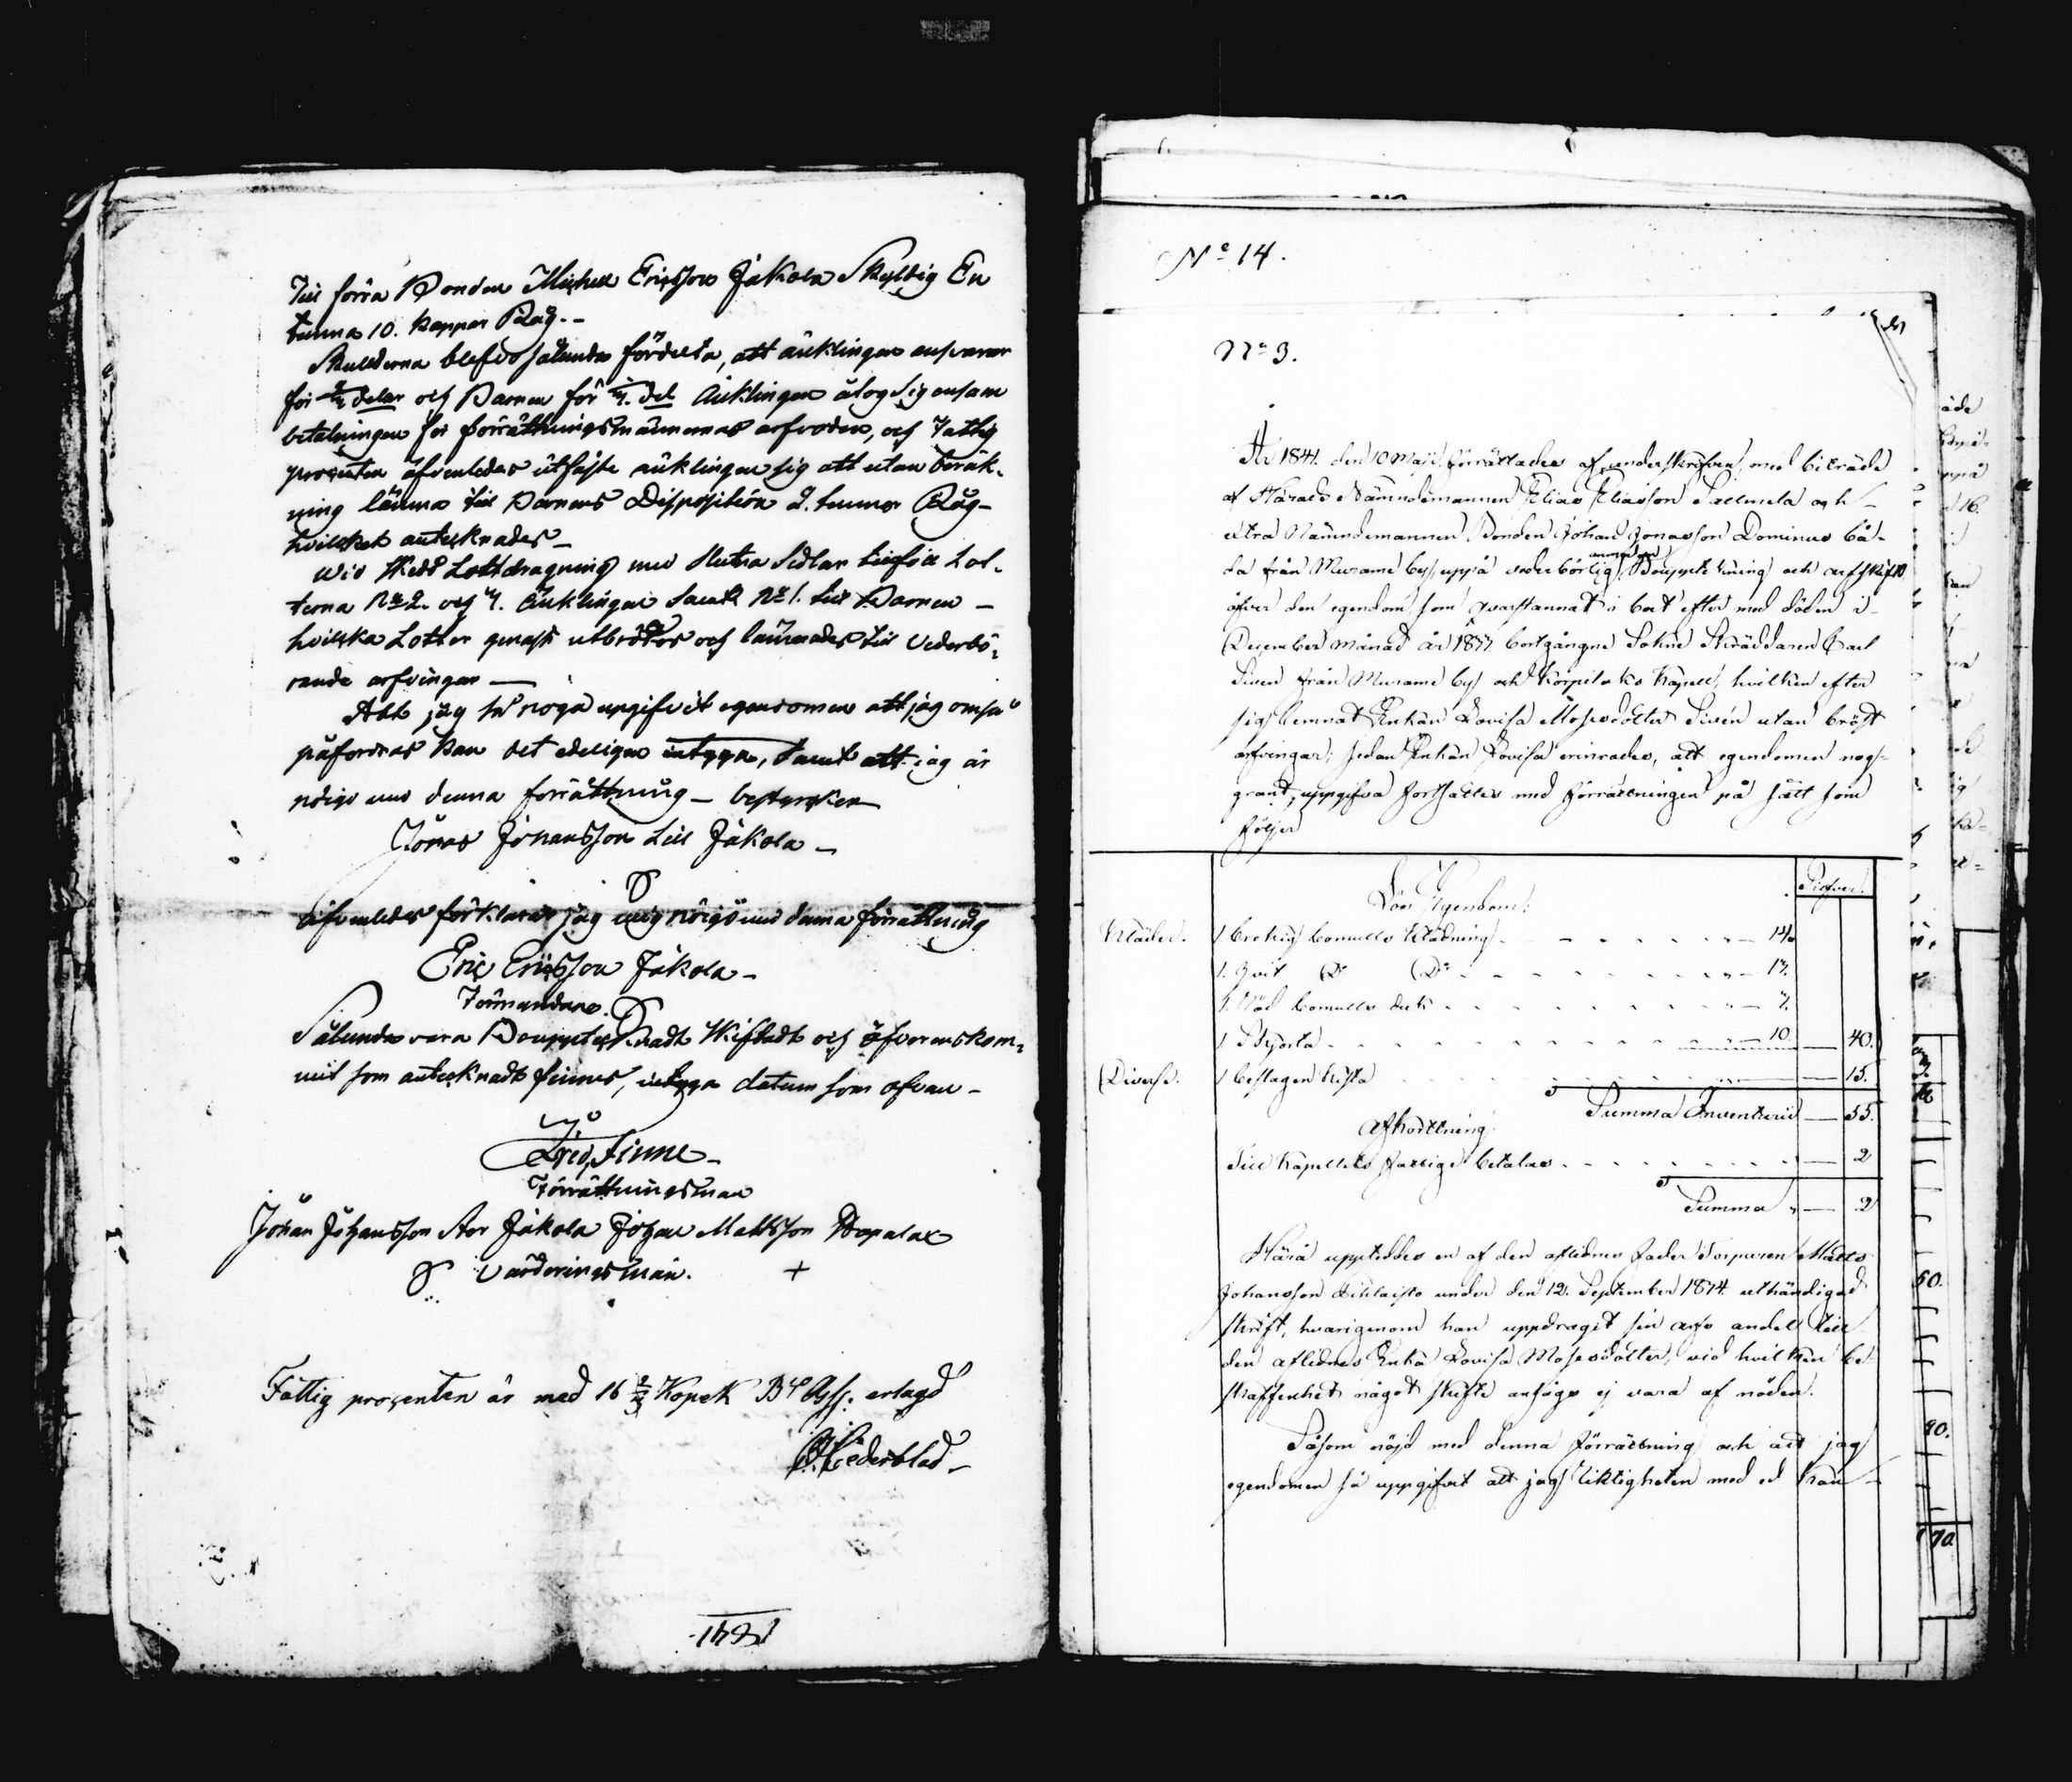 Till förra Bonden Michell Ericsson Jakola Skyldig En
tunna 10. kappar Råg.-
Skullderna blefvo sålunda fördelta, att änklingen ansvarar
för 2/3 delar och Barnen för 1/3. del Änklingen åtog sig ensam
betalningen för förrättningsmännernas arfvoden, och Fattig
procenten äfvenledes utfäste änklingen sig att utan beräk-
ning lämna till Barnens Disposition 2. tunnor Råg-
hvilket antecknades-
Wid skedd Lottdragning med slutna Sedlar tillföll Lot-
terna No 2. och 3. Änklingen samt No 1. till Barnen -
hvilka Lotter genast utbröttos och lämnades till Vederbö-
rande arfvingar -
Att jag så noga uppgifvit egendomen att jag om så
påfordras kan det edeligen intyga, samt att jag är
nöigd med denna förrättning - bestyrker
Jonas Johansson Lill Jakola -
Äfvenledes förklarar jag mig nöigd med denna förrättning
Eric Ericsson Jakola -
Förmyndare.
Sålunda vara Bouptecknadt Skiftadt och öfverenskom-
mit som antecknadt finnes, intyga datum som ofvan -
Finne -
Förrättningsman
Johan Johansson Stor Jakola Johan Mattsson Hopalax
Värderingsmän. +
Fattig procenten är med 16 2/3 Kopek Bco Ass: erlagd
Cederblad -
1841.
No 14.
No 3.
År 1841. den 10 Maji, förrättades af underskrifven, med biträde
af Härads Nämndemannen Elias Eliasson Sallmela och -
extra Nämndemannen Bonden Johan Jonasson Dominus bå-
da från Murame by, uppå vederbörlig anmodan Bouppteckning och arfskifte
öfver den egendom, som qvarstannat i bo't efter med döden i -
December månad år 1837 bortgångne Sokne Skräddaren Carl
Siven från Murame by och Korpilaks Kapell, hvilken efter
sig lemnat Enkan Lovisa Mosesdotter Sivén utan bröst
arfvingar; sedan Enkan Lovisa erinrades, att egendomen nog-
grant uppgifva fortsattes med förrättningen på sätt som
följer
Silfver.
Lös Egendom:
Kläder. 1 brokig bomulls Klädning - 13.
1. Hvit Do Do - 13.
1. Röd bomulls duk - 7.
1 Skjorta - 10 - 40.
Diverse. 1 beslagen Kista - 15.
Summa Inventarii - 55.
Afkortning
Till Kapellets fattige betalas - 2
Summa - 2
Härå uppteddes en af den aflidnes fader Torparen Matts
Johansson under den 12. September 1834 uthändigad
skrift, hvarigenom han uppdragit sin arfs andel till
den aflidnes Enka Lovisa Mosesdotter, vid hvilken be-
skaffenhet något skifte ansågs ej vara af nöden.
Såsom nöjd med denna förrättning och att jag
egendomen så uppgifvit att jag riktigheten med ed kan -